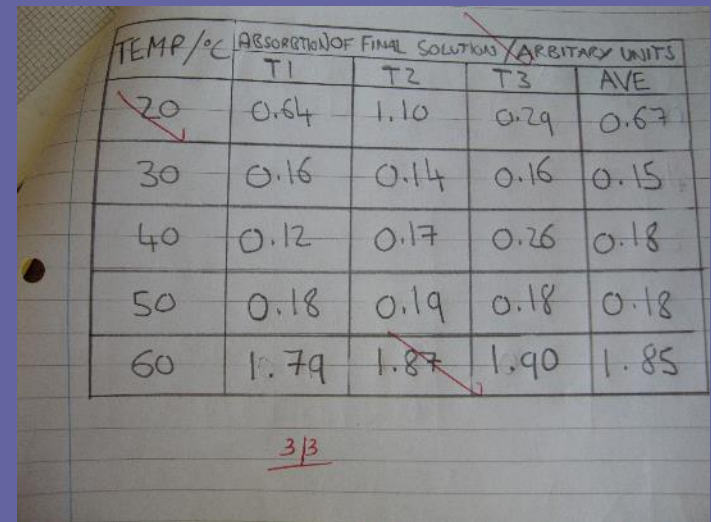 TEMP/°C ABSORBTION OF FINAL SOLUTION/ARBITARY UNITS
T1 T2 T3 AVE
20 0.64 1.10 0.29 0.67
30 0.16 0.14 0.16 0.15
40 0.12 0.17 0.26 0.18
50 0.18 0.19 0.18 0.18
60 1.79 1.87 1.90 1.85
3/3